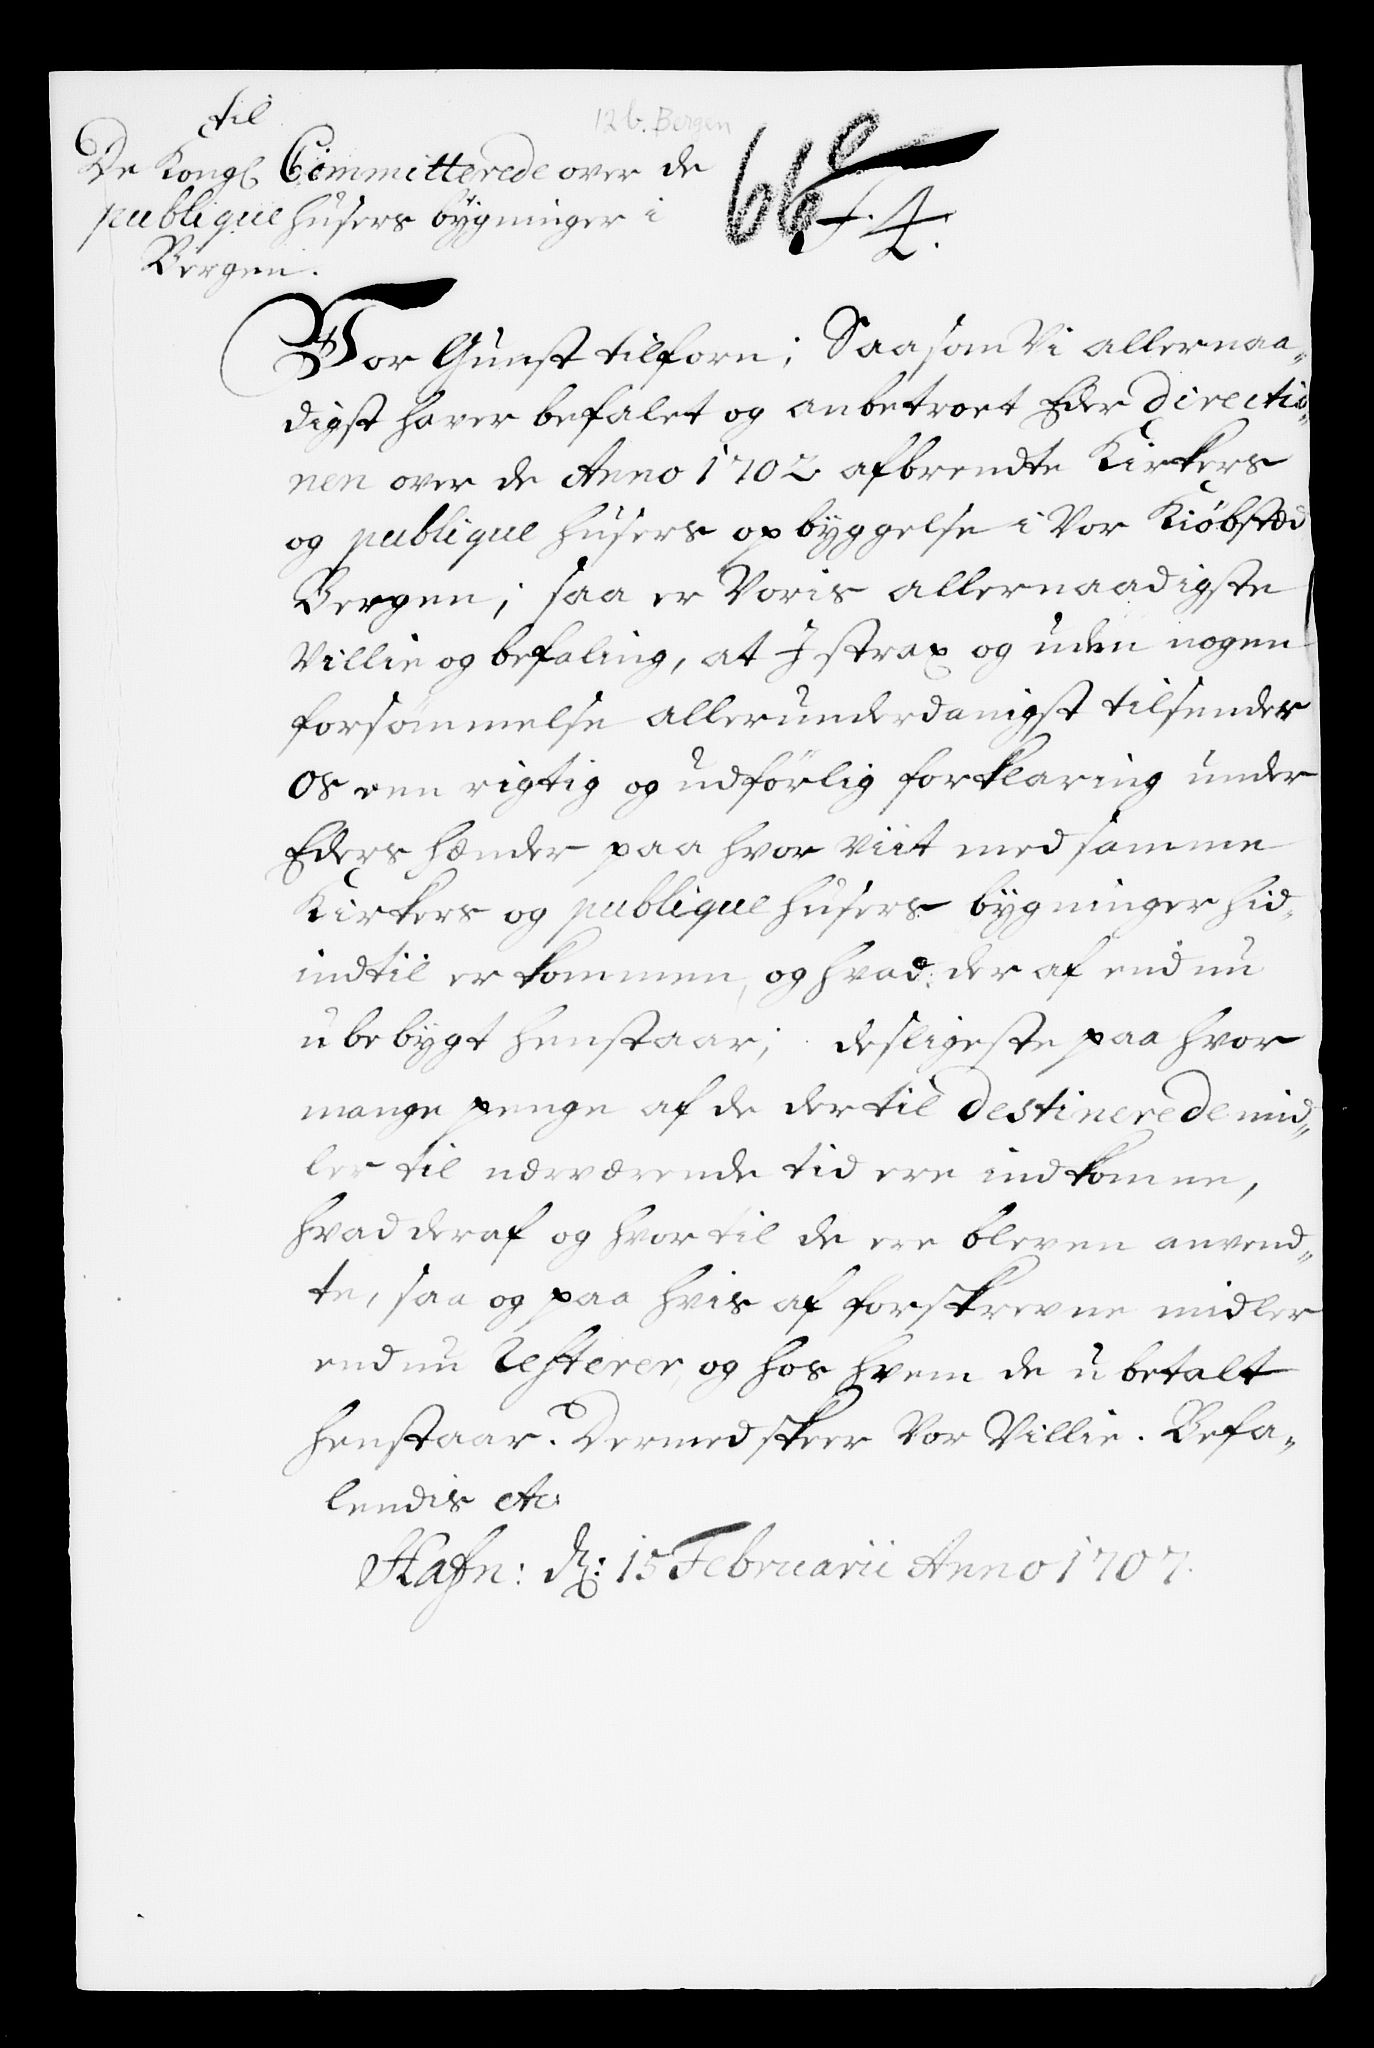 til
12b. Bergen
De Kongl Committerede over de
publique husers bygninger i
Bergen.
66
F. 4.
Vor Gunst tilforn; Saasom Vi allernaa„
digst haver befalet og anbetroet Eder directio„
nen over de Anno 1702 afbrendte Kirkers
og publique husers opbyggelse i Vor Kiöbsted
Bergen; saa er Voris allernaadigste
Villie og befaling, at I strax og uden nogen
forsömmelse allerunderdanigst tilsender
Os een rigtig og udförlig forklaring under
Eders hænder paa hvor viit med samme
Kirkers og publique husers bygninger hid„
indtil er kommen, og hvad der af endnu
ubebygt henstaar; desligeste paa hvor
mange penge af de dertil destinerede mid„
ler til nærværende tid ere indkomne,
hvad deraf og hvortil de ere bleven anvend„
te, saa og paa hvis af forskrevne midler
endnu Resterer, og hos hvem de ubetalt
henstaar. Dermed skeer Vor Villie. Befa„
lendis etc:
Hafn: d: 15 Februarii Anno 1707.